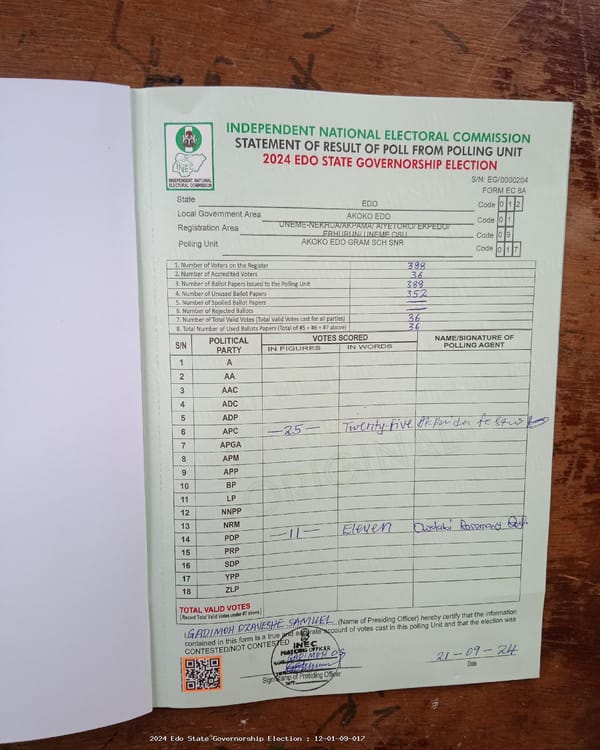 INDEPENDENT NATIONAL ELECTORAL COMMISSION
STATEMENT OF RESULT OF POLL FROM POLLING UNIT
2024 EDO STATE GOVERNORSHIP ELECTION
INEC
INDEPENDENT NATIONAL
ELECTORAL COMMISSION
S/N: EG/0000204
FORM EC 8A
State EDO Code 0 1 2
Local Government Area AKOKO EDO Code 0 1
Registration Area UNEME-NEKHUA/AKPAMA/ AIYETORO/ EKPEDU/ ERHURUN/ UNEME OSU Code 0 9
Polling Unit AKOKO EDO GRAM SCH SNR Code 0 1 7
1. Number of Voters on the Register 388
2. Number of Accredited Voters 36
3. Number of Ballot Papers Issued to the Polling Unit 388
4. Number of Unused Ballot Papers 352
5. Number of Spoiled Ballot Papers —
6. Number of Rejected Ballots —
7. Number of Total Valid Votes (Total Valid Votes cast for all parties) 36
8. Total Number of Used Ballots Papers (Total of #5 + #6 + #7 above) 36
S/N POLITICAL PARTY VOTES SCORED NAME/SIGNATURE OF POLLING AGENT
IN FIGURES IN WORDS
1 A
2 AA
3 AAC
4 ADC
5 ADP
6 APC —25— Twenty-Five
7 APGA
8 APM
9 APP
10 BP
11 LP
12 NNPP
13 NRM
14 PDP —11— Eleven Rosemary
15 PRP
16 SDP
17 YPP
18 ZLP
TOTAL VALID VOTES
(Record Total Valid Votes under #7 above)
I, GADIMOH DZAVESHE SAMUEL (Name of Presiding Officer) hereby certify that the information
contained in this form is a true and accurate account of votes cast in this polling Unit and that the election was
CONTESTED/NOT CONTESTED.
INEC
PRESIDING OFFICER
GADIMOH D.S
21-09-24
Signature/Stamp of Presiding Officer
Date
2024 Edo State Governorship Election : 12-01-09-017